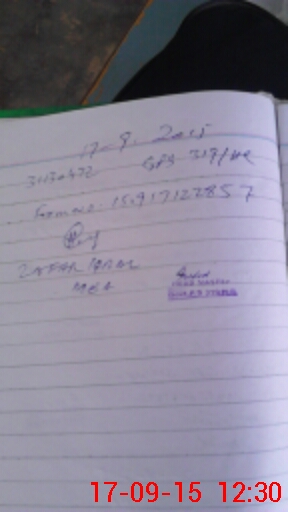 17-9. 2015
31130472 GPS 319/HR
Form no: 15917122857
ZAFAR IQBAL
MEA
17-09-15 12:30